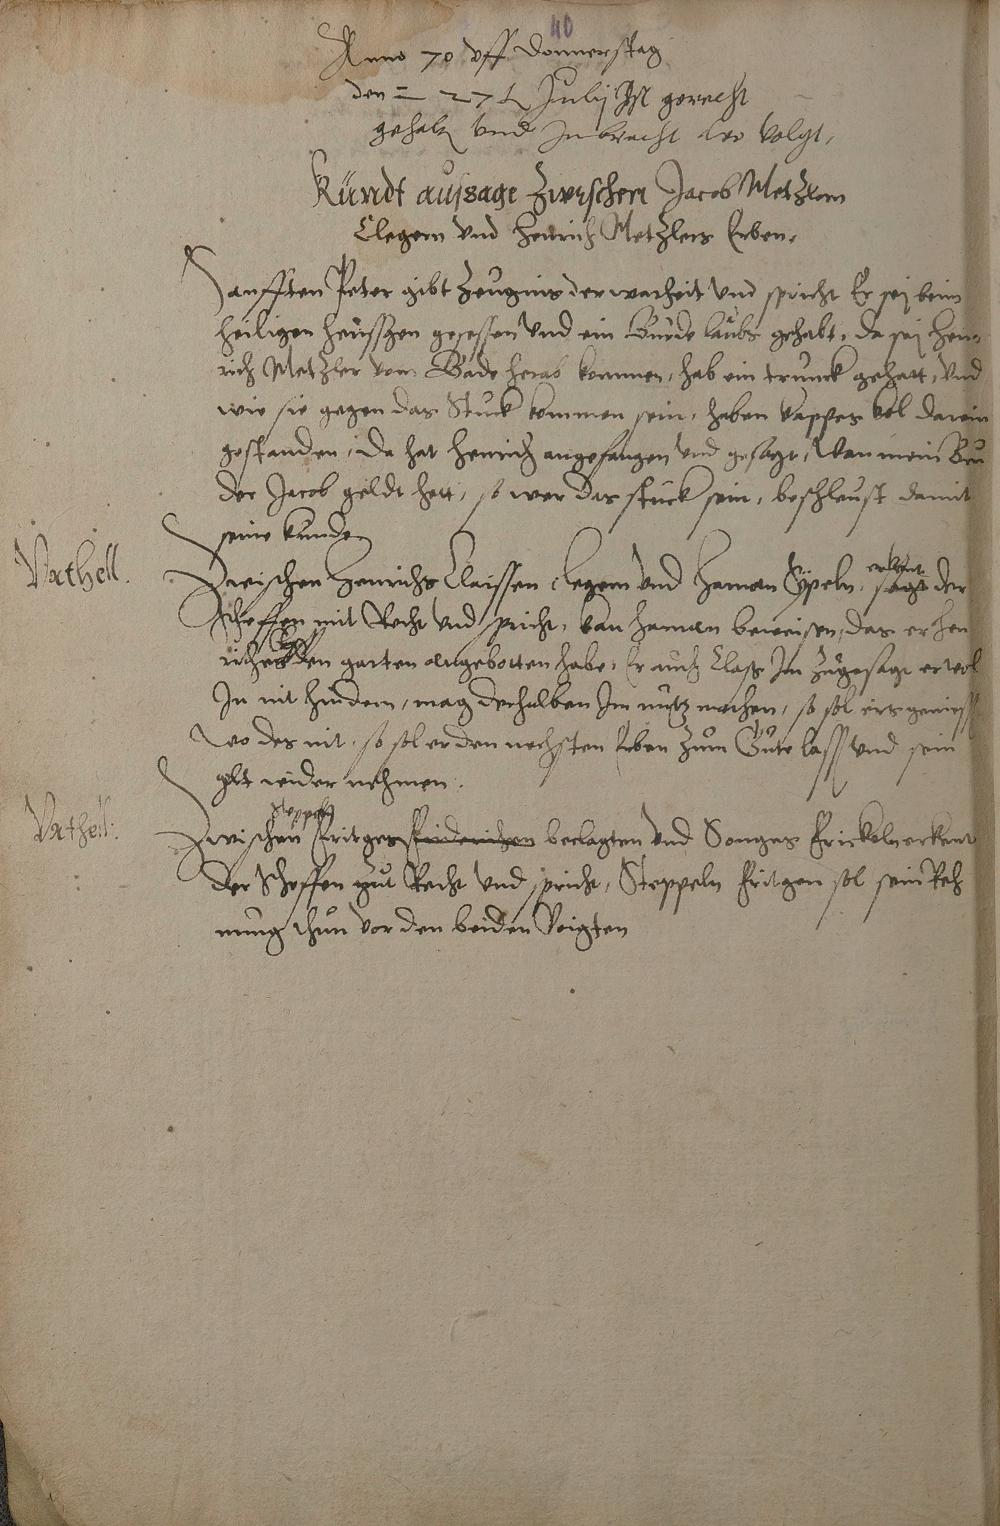 40
Anno 70 uff Donnerstag
den 27 Julij Ist gericht
gehaltē und Inbracht wie volgt,
Kündt aussage Zwischen Jacob Metzlern
Clegern und Henrich Metzlers Erben.
Hanfften Peter gibt Zeugnis der warheit und spricht Er sej beim
heiligen heusgen gesessen und ein Bürde laubs gehabt, da sej Hen-
rich Metzler vom Bade herab kommen, hab ein trunck gehatt, und
wie sie gegen das Stuck kommen sein, haben kappes vol darein
gestanden, Da hat Henrich angefangen und gesagt, Wan mein Bru
der Jacob geldt hett, so wer das stück sein, beschleust damit
seine kunde
Urthell.
Zwischen Henrichs Claissen clegern und Haman Eÿpeln, erkent der
Scheffen mit Recht und spricht, kan Haman beweisen, das er Hen
richs den garten angebotten habe, Er auch Class Im zugesagt er wol
In nit hindern, mag derhalben Im nutz machen, so sol ers geniess
wo des nit, so sol er den nechsten Erben zum Gute lass und sein
gelt wider nehmen.
Urthell:
Steppeln
Zwischen Fritgen beclagten und Songes Frickeln erkent
der Scheffen zut Recht und spricht, Steppeln Fritgen sol sein Rech
nung thun vor den beiden Voigten